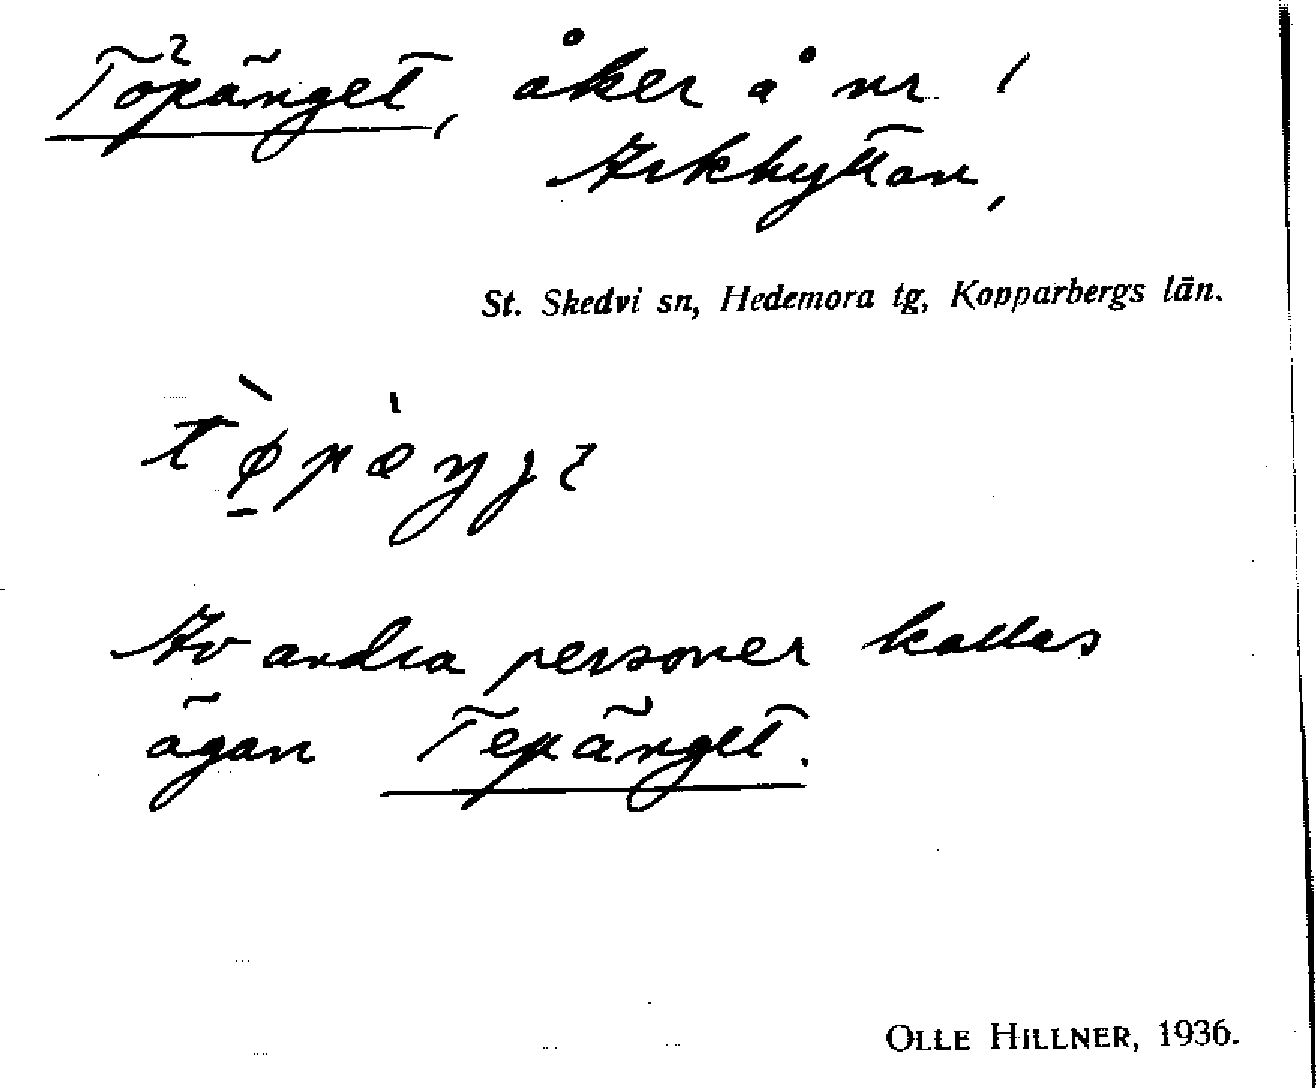 Töpänget, åker å nr 1
Arkhyttan,
St. Skedvi sn, Hedemora tg, Kopparbergs län.
Av andra personer kallas
ägan Tepänget.
OLLE HILLNER, 1936.